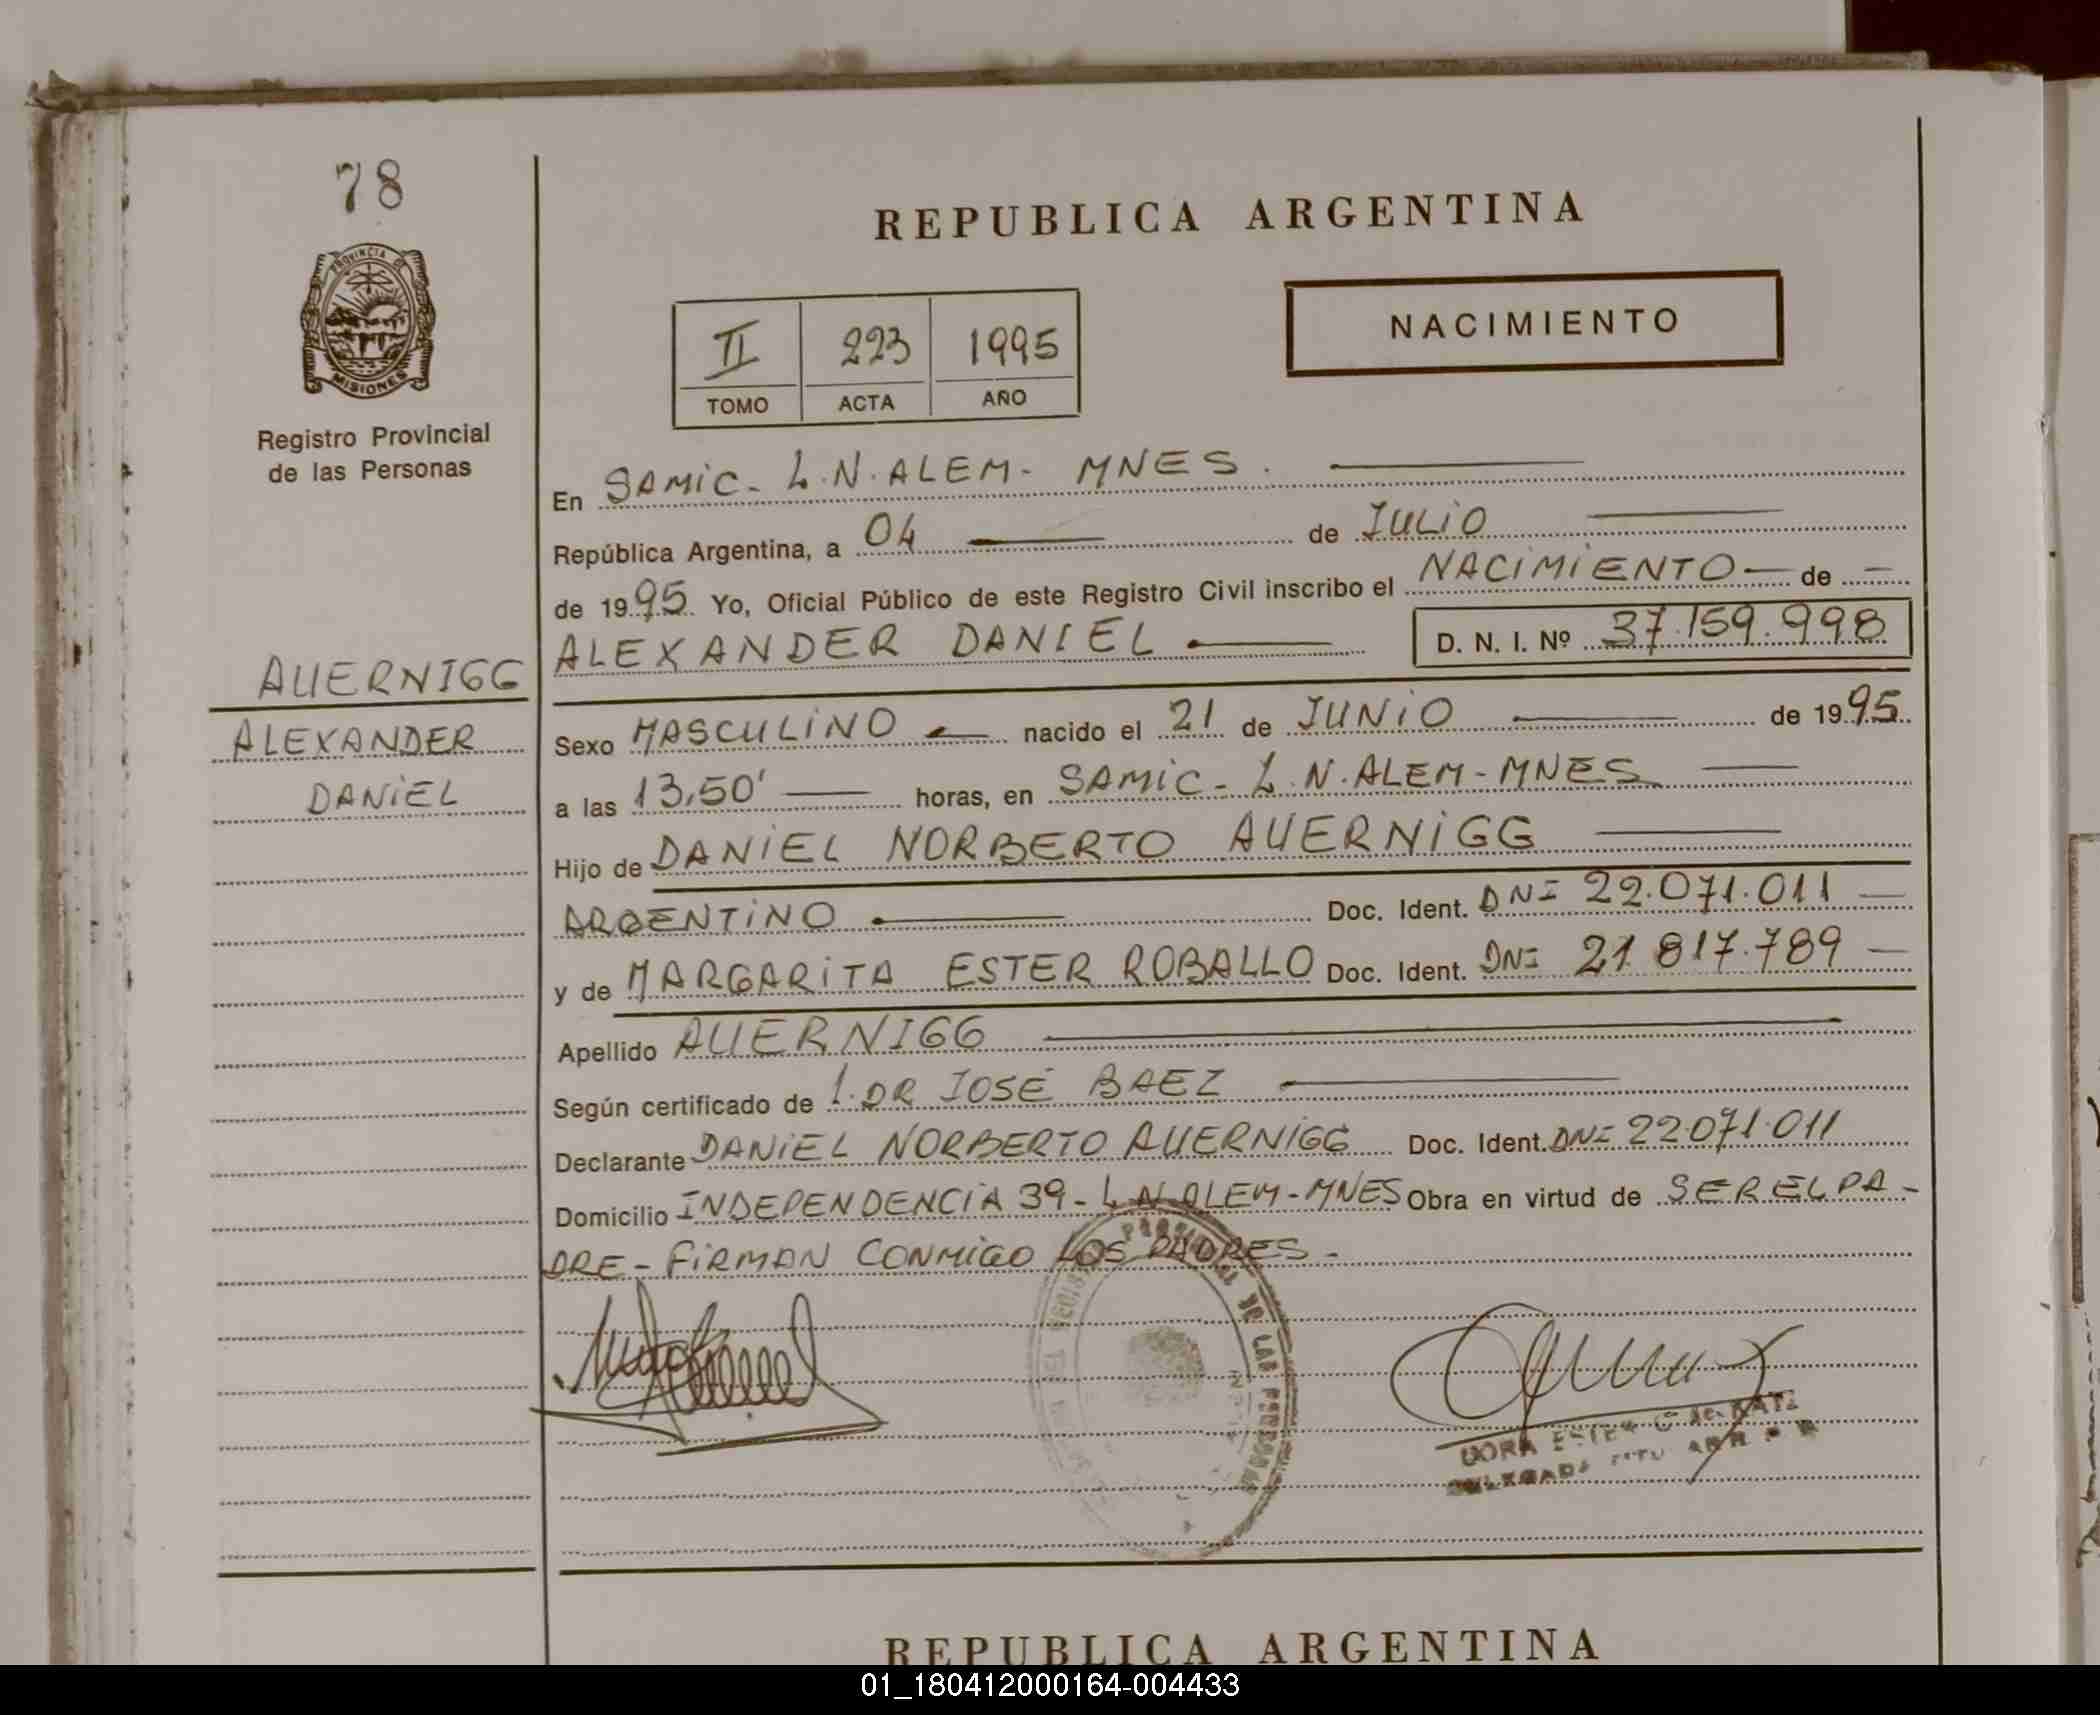 78
REPUBLICA ARGENTINA
PROVINCIA DE
MISIONES
Registro Provincial
de las Personas
NACIMIENTO
II 223 1995
TOMO ACTA AÑO
En SAMIC - L.N. ALEM - MNES.
República Argentina, a 04 de JULIO
de 1995. Yo, Oficial Público de este Registro Civil inscribo el NACIMIENTO de
ALEXANDER DANIEL D. N. I. Nº 37.159.998
AUERNIGG
ALEXANDER
DANIEL
Sexo MASCULINO nacido el 21 de JUNIO de 1995
a las 13,50' horas, en SAMIC - L.N. ALEM - MNES
Hijo de DANIEL NORBERTO AUERNIGG
ARGENTINO Doc. Ident. DNI 22.071.011
y de MARGARITA ESTER ROBALLO Doc. Ident. DNI 21.817.789
Apellido AUERNIGG
Según certificado de 1. DR JOSÉ BAEZ
Declarante DANIEL NORBERTO AUERNIGG Doc. Ident. DNI 22.071.011
Domicilio INDEPENDENCIA 39 - L.N. ALEM - MNES Obra en virtud de SER EL PA-
DRE - FIRMAN CONMIGO LOS PADRES -
DE LAS PERSONAS
DORA ESTER
REPUBLICA ARGENTINA
01_180412000164-004433